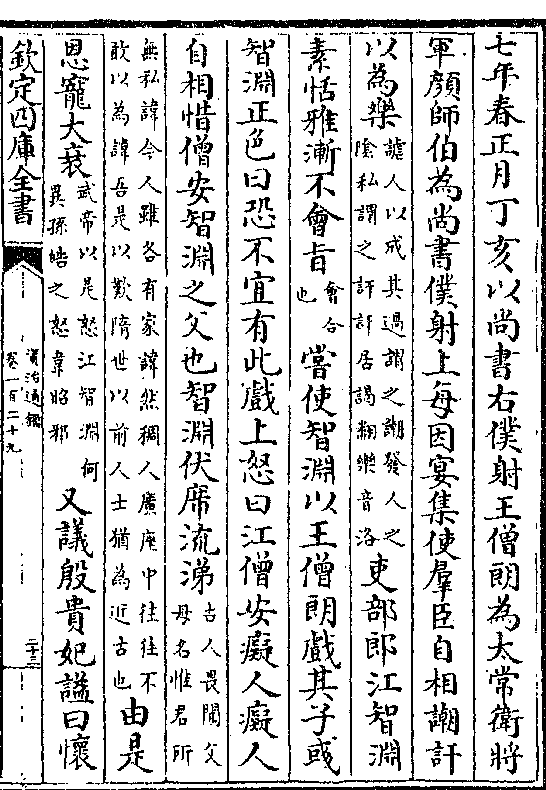 七年春正月丁亥以尚書右僕射王僧朗為太常衛將
軍顏師伯為尚書僕射上每因宴集使羣臣自相謿訐
以為樂
謔人以成其過謂之謿發人之
陰私謂之訐訐居謁翻樂音洛
吏部郎江智淵
素恬雅漸不會旨
會合
也
嘗使智淵以王僧朗戲其子彧
智淵正色曰恐不宜有此戲上怒曰江僧安癡人癡人
自相惜僧安智淵之父也智淵伏席流涕
古人畏聞父
母名惟君所
無私諱今人雖各有家諱然稠人廣座中往往不
敢以為諱吾是以歎隋世以前人士猶為近古也
由是
恩寵大衰
武帝以是怒江智淵何
異孫皓之怒韋昭邪
又議殷貴妃諡曰懷
欽定四庫全書
資治通鑑
卷一百二十九
二十三